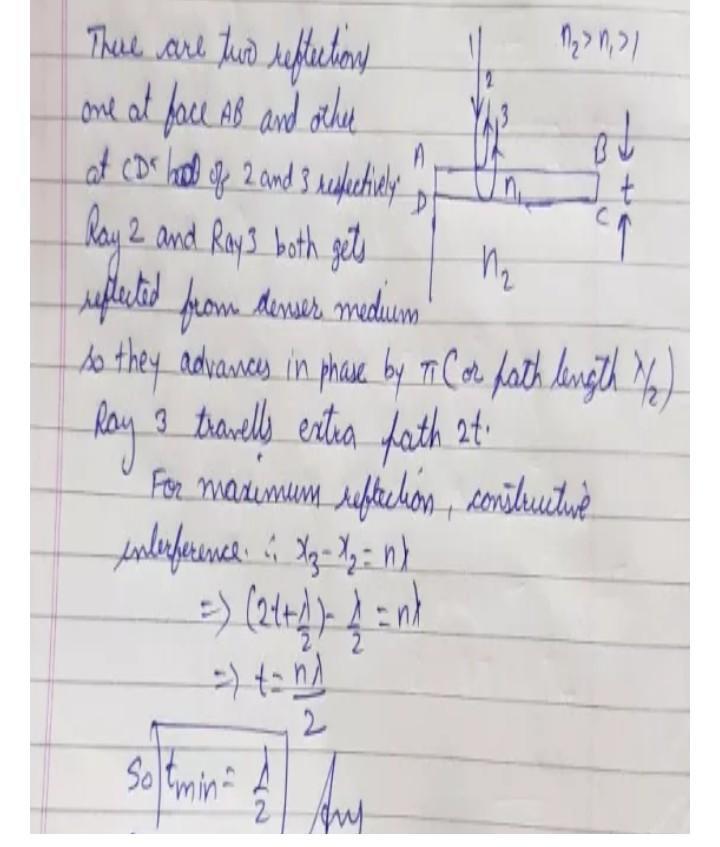 There are two reflections
n₂>n₁>1
one at face AB and other
at CD of 2 and 3 respectively.
Ray 2 and Ray 3 both gets
reflected from denser medium
so they advances in phase by π (or path length λ/2)
Ray 3 travells extra path 2t.
For maximum reflection, constructive
interference. ∴ x₃-x₂ = nλ
=> (2t+λ/2)-λ/2 = nλ
=> t = nλ/2
So tmin = λ/2 Ans
1
2
3
A
B
D
n₁
C
t
n₂